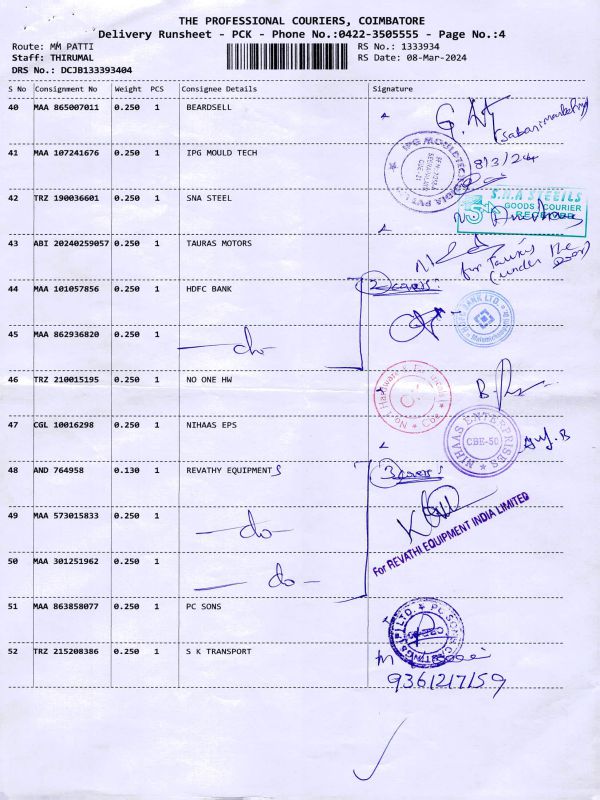 THE PROFESSIONAL COURIERS, COIMBATORE
Delivery Runsheet - PCK - Phone No.:0422-3505555 - Page No.:4
Route: MM PATTI
RS No.: 1333934
Staff: THIRUMAL
RS Date: 08-Mar-2024
DRS No.: DCJB133393404
S No Consignment No Weight PCS Consignee Details Signature
40 MAA 865007011 0.250 1 BEARDSELL
(Sabari marketing)
41 MAA 107241676 0.250 1 IPG MOULD TECH
8/3/24
42 TRZ 190036601 0.250 1 SNA STEEL
S.N.A STEELS
GOODS / COURIER
RECEIVED
43 ABI 20240259057 0.250 1 TAURAS MOTORS
for Taurus
(under the Door)
44 MAA 101057856 0.250 1 HDFC BANK
2 covers:
BANK LTD.
45 MAA 862936820 0.250 1
-do-
46 TRZ 210015195 0.250 1 NO ONE HW
47 CGL 10016298 0.250 1 NIHAAS EPS
NIHAAS ENTERPRISES
CBE-50
48 AND 764958 0.130 1 REVATHY EQUIPMENTS
3 covers
For REVATHI EQUIPMENT INDIA LIMITED
49 MAA 573015833 0.250 1
-do-
50 MAA 301251962 0.250 1
-do-
51 MAA 863858077 0.250 1 PC SONS
52 TRZ 215208386 0.250 1 S K TRANSPORT
9361217159